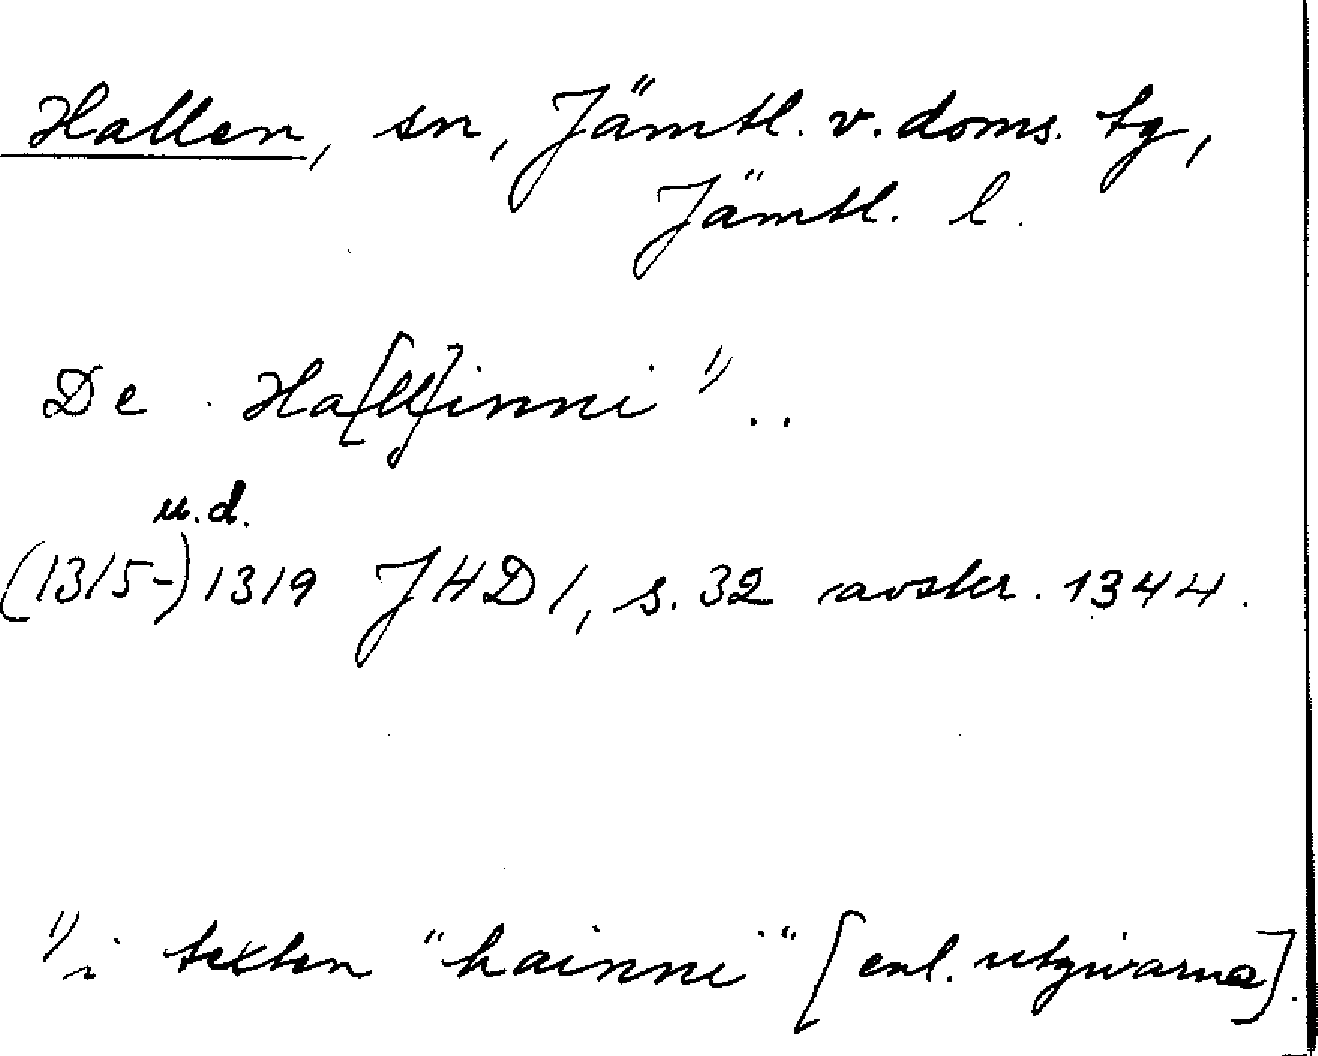 Hallen, sn, Jämtl. v. doms. tg,
Jämtl. l.
De Ha[ll]inni 1) ..
u.d.
(1315-) 1319 JHD 1, s. 32 avskr. 1344.
1) i texten "hainni" [enl. utgivarna].